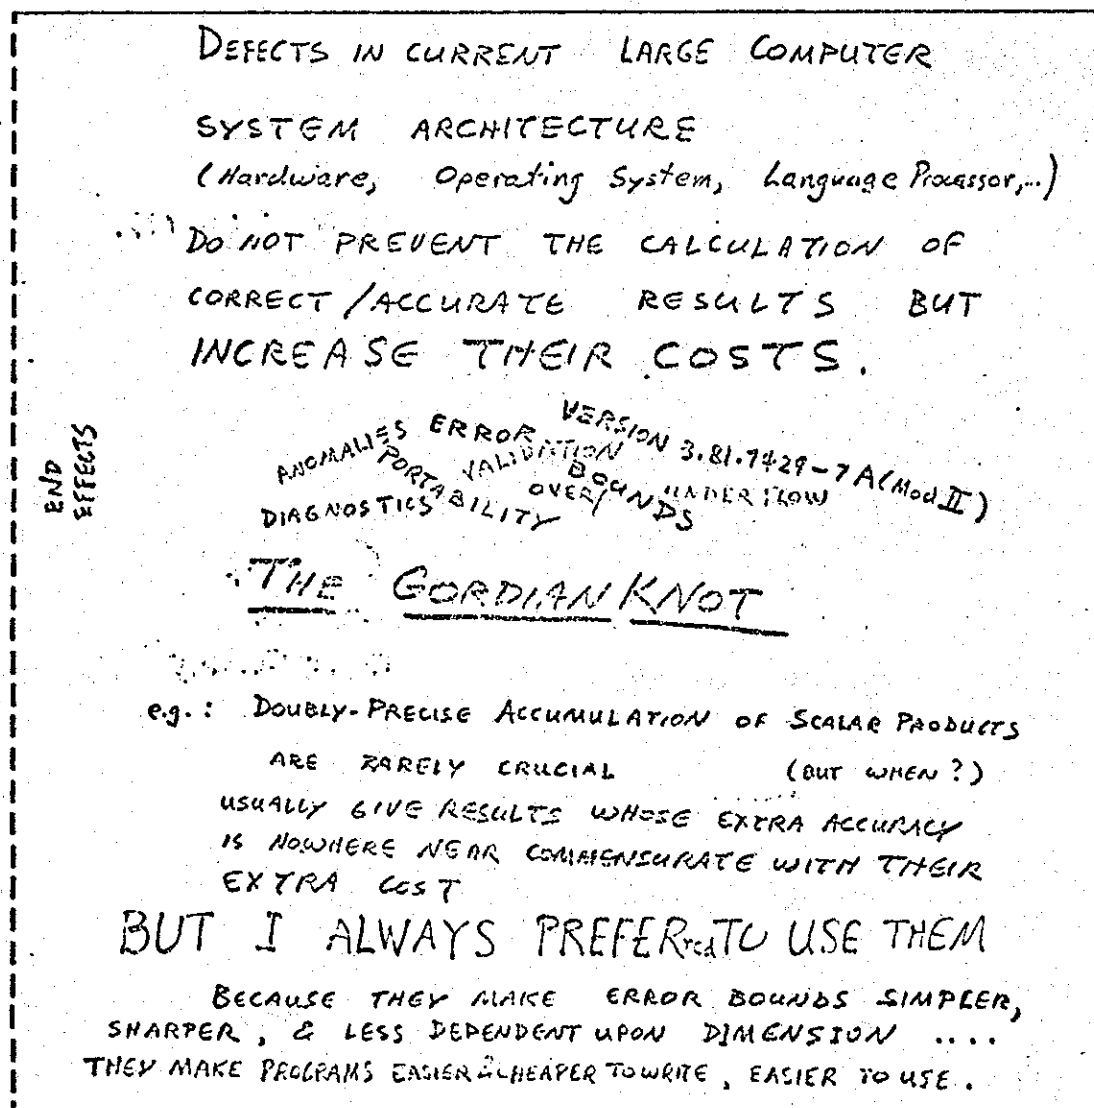 DEFECTS IN CURRENT LARGE COMPUTER
SYSTEM ARCHITECTURE
(Hardware, Operating System, Language Processor,...)
DO NOT PREVENT THE CALCULATION OF
CORRECT/ACCURATE RESULTS BUT
INCREASE THEIR COSTS.
END
EFFECTS
ANOMALIES
ERROR
BOUNDS
VERSION 3.81.7429-7A(Mod II)
PORTABILITY
VALIDATION
OVER/
UNDERFLOW
DIAGNOSTICS
THE GORDIAN KNOT
e.g.: DOUBLY-PRECISE ACCUMULATION OF SCALAR PRODUCTS
ARE RARELY CRUCIAL (BUT WHEN?)
USUALLY GIVE RESULTS WHOSE EXTRA ACCURACY
IS NOWHERE NEAR COMMENSURATE WITH THEIR
EXTRA COST
BUT I ALWAYS PREFERred TO USE THEM
BECAUSE THEY MAKE ERROR BOUNDS SIMPLER,
SHARPER, & LESS DEPENDENT UPON DIMENSION ....
THEY MAKE PROGRAMS EASIER & CHEAPER TO WRITE, EASIER TO USE.